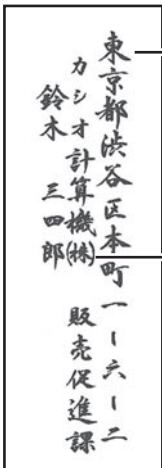 東京都渋谷区本町一ー六ー二
カシオ計算機㈱　販売促進課
鈴木　三四郎